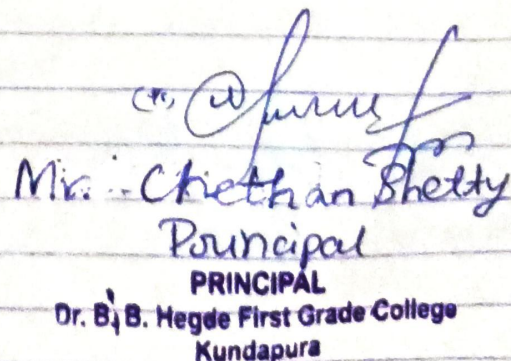 Mr. Chethan Shetty
Principal
PRINCIPAL
Dr. B. B. Hegde First Grade College
Kundapura